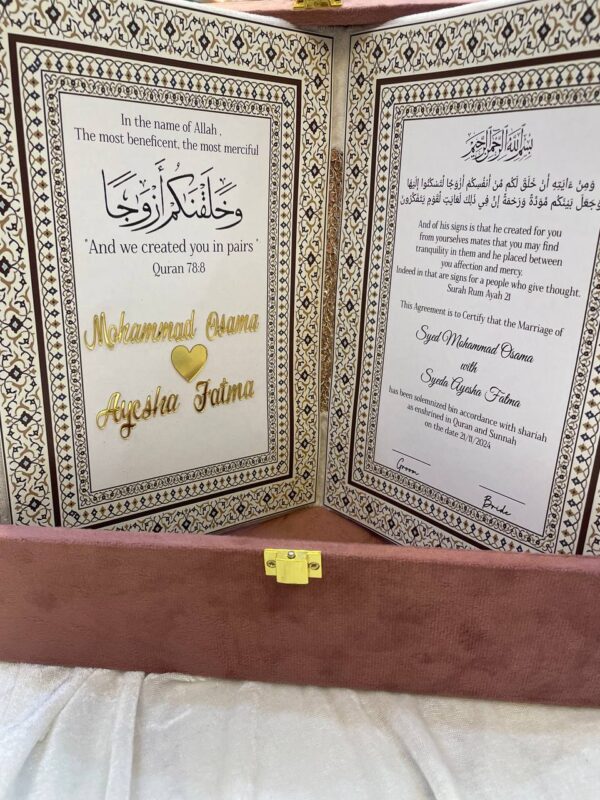 In the name of Allah ,
The most beneficent, the most merciful
وَخَلَقْنَكُمْ أَزْوَٰجًا
"And we created you in pairs "
Quran 78:8
Mohammad Osama
Ayesha Fatma
بِسْمِ اللَّهِ الرَّحْمَنِ الرَّحِيمِ
وَمِنْ ءَايَتِهِ أَنْ خَلَقَ لَكُم مِّنْ أَنفُسِكُمْ أَزْوَٰجًا لِّتَسْكُنُوٓا إِلَيْهَا
وَجَعَلَ بَيْنَكُم مَّوَدَّةً وَرَحْمَةً إِنَّ فِي ذَٰلِكَ لَءَايَٰتٍ لِّقَوْمٍ يَتَفَكَّرُونَ
And of his signs is that he created for you
from yourselves mates that you may find
tranquility in them and he placed between
you affection and mercy.
Indeed in that are signs for a people who give thought.
Surah Rum Ayah 21
This Agreement is to Certify that the Marriage of
Syed Mohammad Osama
with
Syeda Ayesha Fatma
has been solemnized bin accordance with shariah
as enshrined in Quran and Sunnah
on the date 21/11/2024
Groom
Bride